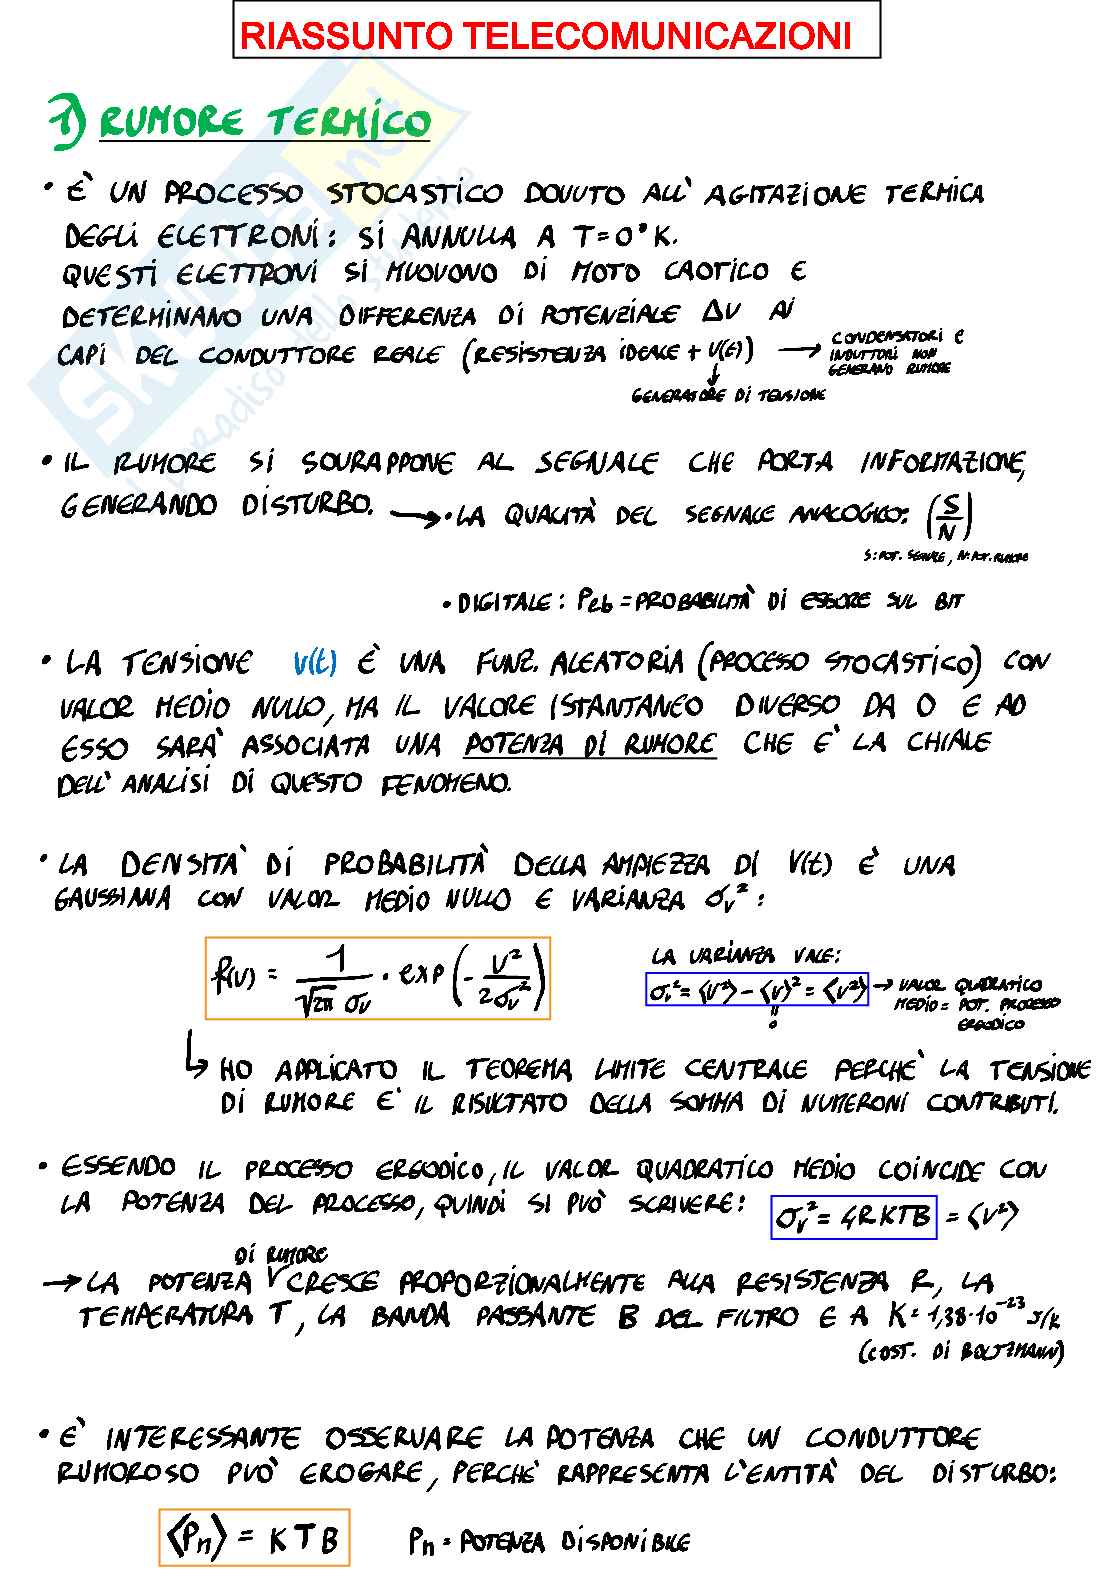 RIASSUNTO TELECOMUNICAZIONI
1) RUMORE TERMICO
• È UN PROCESSO STOCASTICO DOVUTO ALL' AGITAZIONE TERMICA
DEGLI ELETTRONI: SI ANNULLA A T=0°K.
QUESTI ELETTRONI SI MUOVONO DI MOTO CAOTICO E
DETERMINANO UNA DIFFERENZA DI POTENZIALE ΔV AI
CAPI DEL CONDUTTORE REALE (RESISTENZA IDEALE + V(t)) → CONDENSATORI E
INDUTTORI NON
GENERANO RUMORE
↓
GENERATORE DI TENSIONE
• IL RUMORE SI SOVRAPPONE AL SEGNALE CHE PORTA INFORMAZIONE,
GENERANDO DISTURBO. → • LA QUALITÀ DEL SEGNALE ANALOGICO: (S/N)
S: POT. SEGNALE, N: POT. RUMORE
• DIGITALE: Peb = PROBABILITÀ DI ERRORE SUL BIT
• LA TENSIONE V(t) È UNA FUNZ. ALEATORIA (PROCESSO STOCASTICO) CON
VALOR MEDIO NULLO, MA IL VALORE ISTANTANEO DIVERSO DA 0 E AD
ESSO SARÀ ASSOCIATA UNA POTENZA DI RUMORE CHE È LA CHIAVE
DELL' ANALISI DI QUESTO FENOMENO.
• LA DENSITÀ DI PROBABILITÀ DELLA AMPIEZZA DI V(t) È UNA
GAUSSIANA CON VALOR MEDIO NULLO E VARIANZA σv²:
f(v) = 1/(√2π σv) · exp(-v²/2σv²)
LA VARIANZA VALE:
σv² = ⟨v²⟩ - ⟨v⟩² = ⟨v²⟩ → VALOR QUADRATICO
MEDIO = POT. PROCESSO
ERGODICO
=
0
↳ HO APPLICATO IL TEOREMA LIMITE CENTRALE PERCHÈ LA TENSIONE
DI RUMORE È IL RISULTATO DELLA SOMMA DI NUMERONI CONTRIBUTI.
• ESSENDO IL PROCESSO ERGODICO, IL VALOR QUADRATICO MEDIO COINCIDE CON
LA POTENZA DEL PROCESSO, QUINDI SI PUÒ SCRIVERE: σv² = 4RKTB = ⟨v²⟩
DI RUMORE
→ LA POTENZA V CRESCE PROPORZIONALMENTE ALLA RESISTENZA R, LA
TEMPERATURA T, LA BANDA PASSANTE B DEL FILTRO E A K = 1,38·10⁻²³ J/K
(COST. DI BOLTZMANN)
• È INTERESSANTE OSSERVARE LA POTENZA CHE UN CONDUTTORE
RUMOROSO PUÒ EROGARE, PERCHÈ RAPPRESENTA L'ENTITÀ DEL DISTURBO:
⟨Pn⟩ = KTB
Pn = POTENZA DISPONIBILE